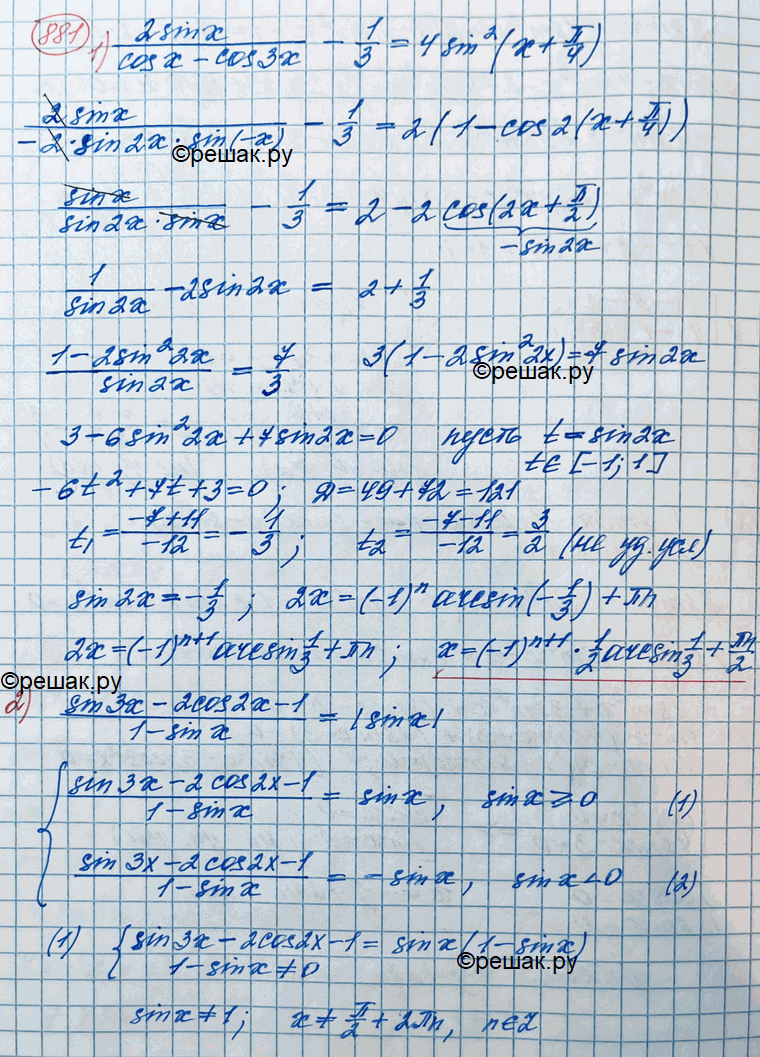 881
1) 2sinx/(cosx - cos3x) - 1/3 = 4sin²(x + π/4)
2sinx/(-2·sin2x·sin(-x)) - 1/3 = 2(1 - cos2(x + π/4))
©решак.ру
sinx/(sin2x·sinx) - 1/3 = 2 - 2cos(2x + π/2)
-sin2x
1/sin2x - 2sin2x = 2 + 1/3
(1 - 2sin²2x)/sin2x = 7/3 3(1 - 2sin²2x) = 7sin2x
©решак.ру
3 - 6sin²2x + 7sin2x = 0 пусть t = sin2x
t ∈ [-1; 1]
-6t² + 7t + 3 = 0; Д = 49 + 72 = 121
t₁ = (-7+11)/(-12) = -1/3; t₂ = (-7-11)/(-12) = 3/2 (не уд. усл)
sin2x = -1/3; 2x = (-1)ⁿ arcsin(-1/3) + πn
2x = (-1)ⁿ⁺¹ arcsin 1/3 + πn; x = (-1)ⁿ⁺¹ · 1/2 arcsin 1/3 + πn/2
©решак.ру
2) (sin3x - 2cos2x - 1)/(1 - sinx) = |sinx|
{ (sin3x - 2cos2x - 1)/(1 - sinx) = sinx, sinx ≥ 0 (1)
(sin3x - 2cos2x - 1)/(1 - sinx) = -sinx, sinx < 0 (2)
(1) { sin3x - 2cos2x - 1 = sinx(1 - sinx)
1 - sinx ≠ 0
©решак.ру
sinx ≠ 1; x ≠ π/2 + 2πn, n ∈ Z